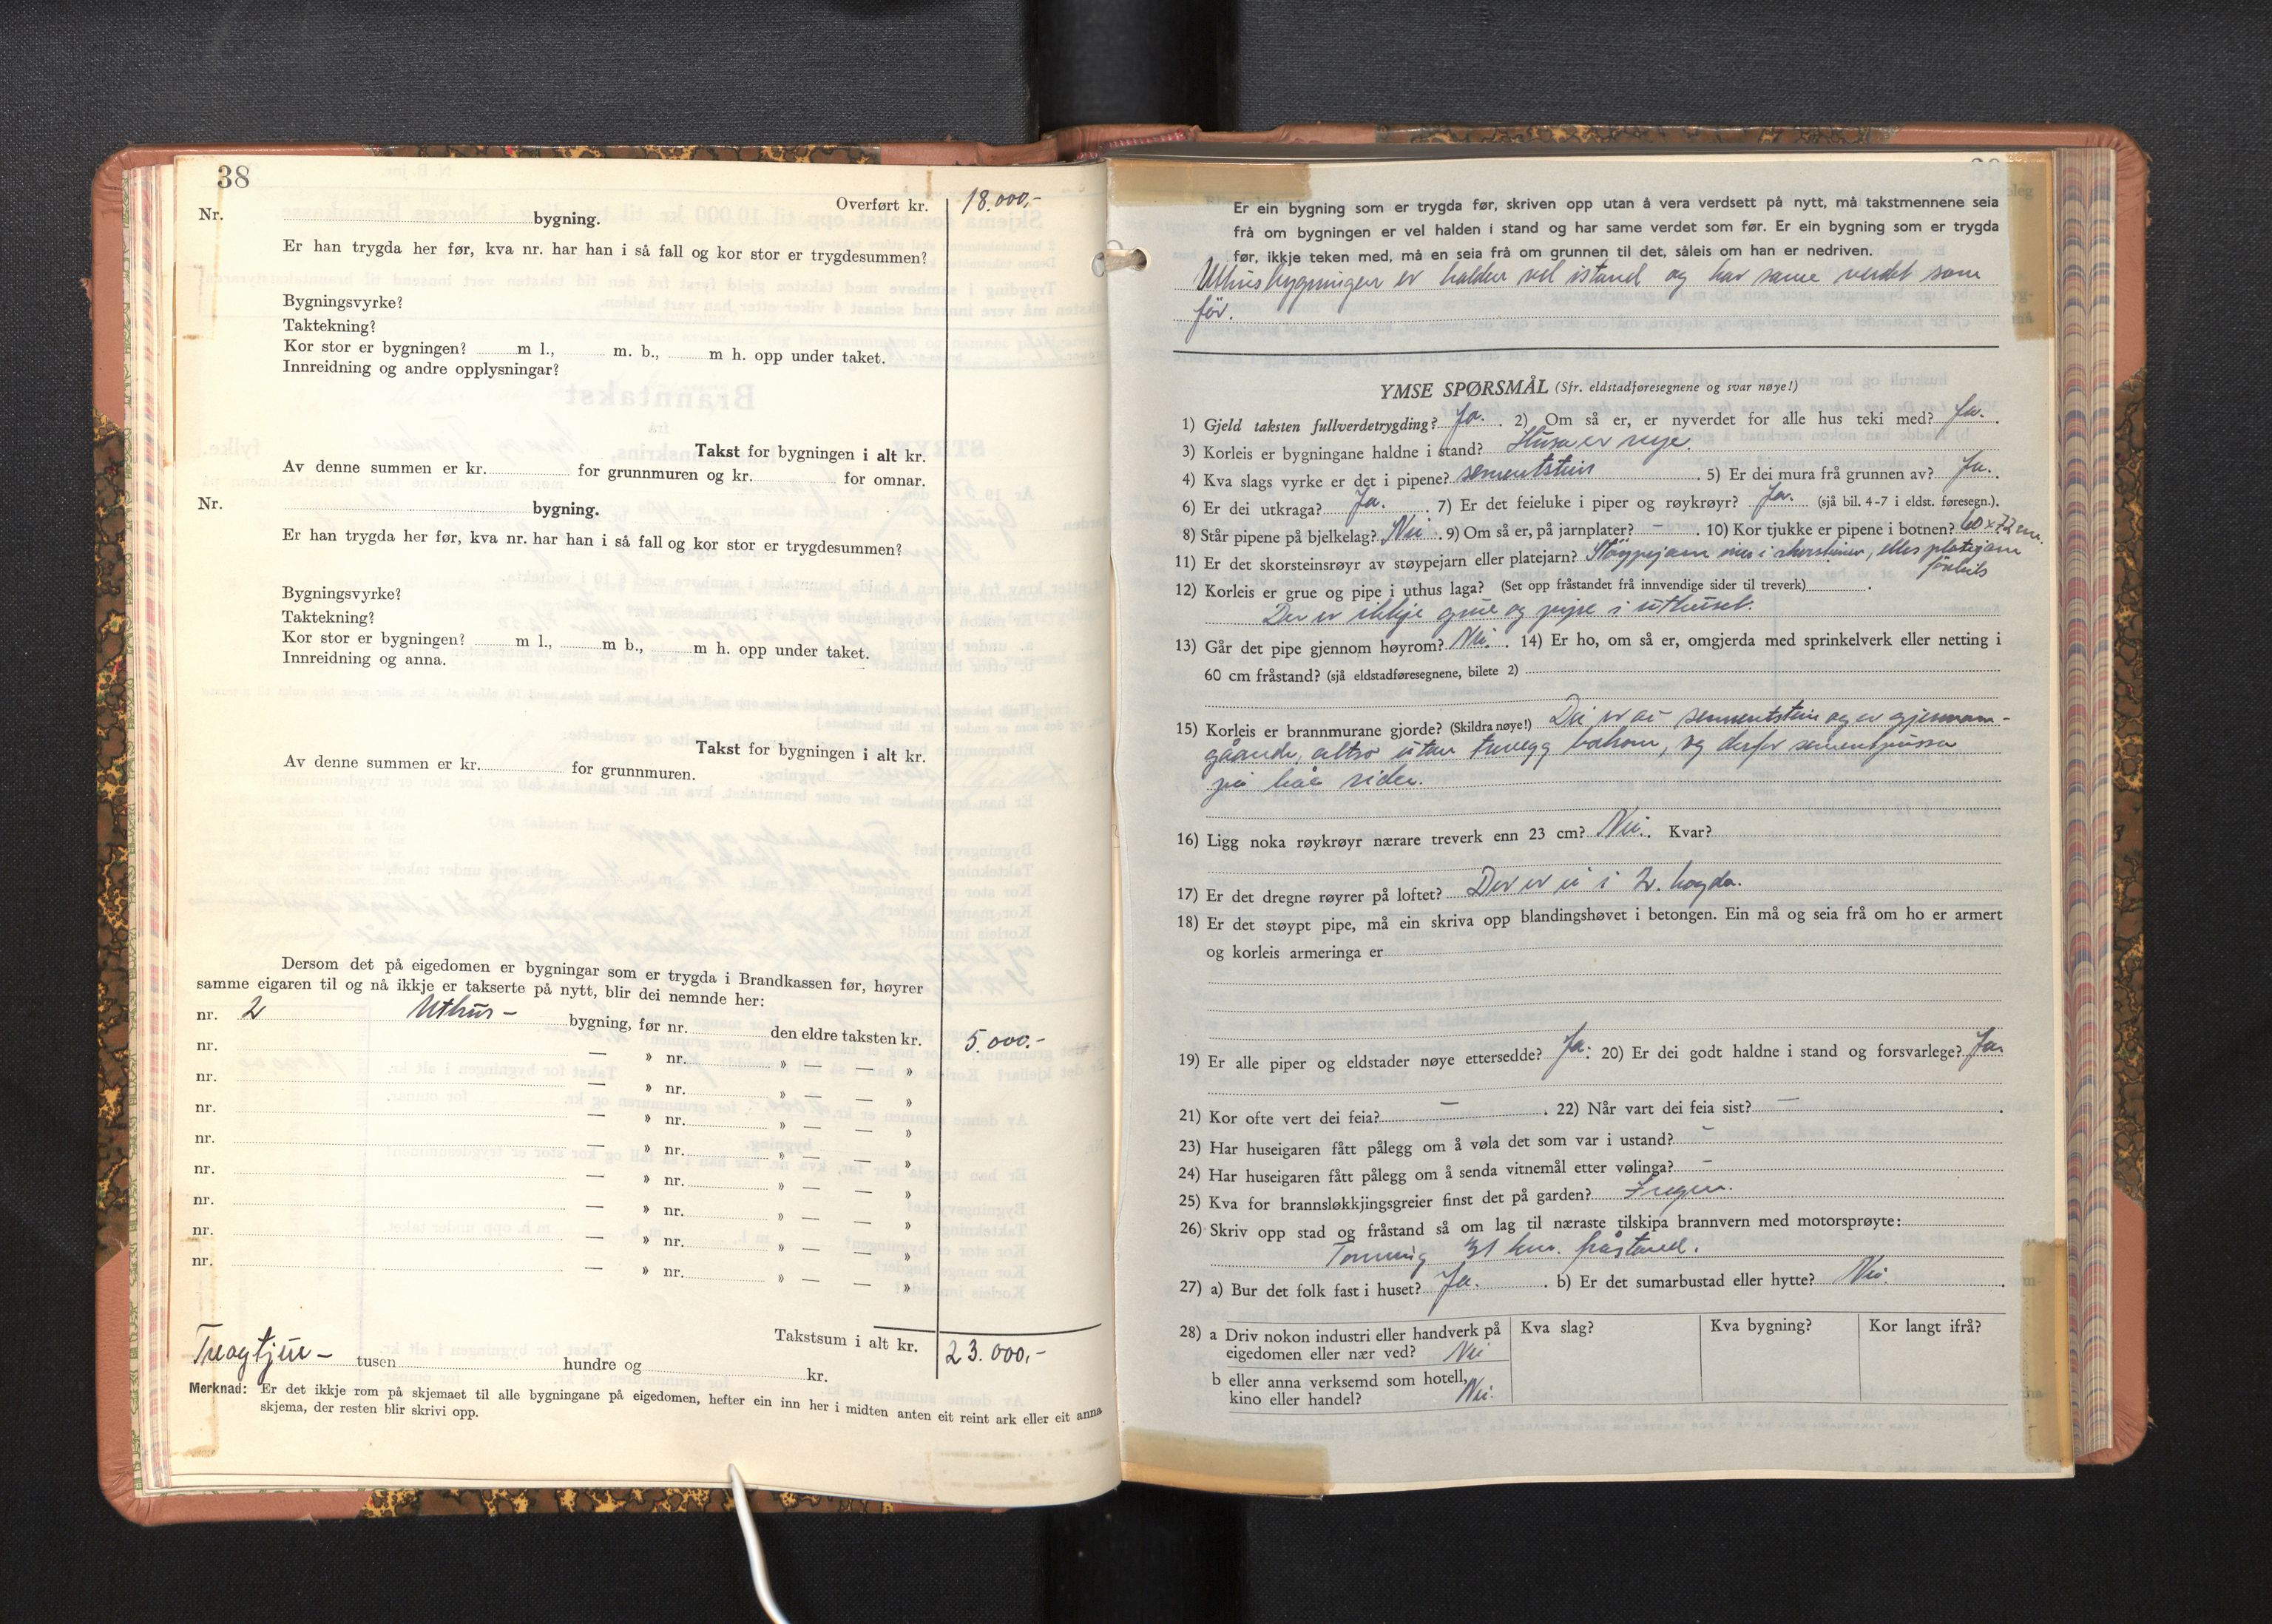 38
Overført kr. 18.000,-
Nr. bygning.
Er han trygda her før, kva nr. har han i så fall og kor stor er trygdesummen?
Bygningsvyrke?
Taktekning?
Kor stor er bygningen? m l., m. b., m h. opp under taket.
Innreidning og andre opplysningar?
Takst for bygningen i alt kr.
Av denne summen er kr. for grunnmuren og kr. for omnar.
Nr. bygning.
Er han trygda her før, kva nr. har han i så fall og kor stor er trygdesummen?
Bygningsvyrke?
Taktekning?
Kor stor er bygningen? m l., m b., m h. opp under taket.
Innreidning og anna.
Takst for bygningen i alt kr.
Av denne summen er kr. for grunnmuren.
Dersom det på eigedomen er bygningar som er trygda i Brandkassen før, høyrer
samme eigaren til og nå ikkje er takserte på nytt, blir dei nemnde her:
nr. 2 Uthus- bygning, før nr. den eldre taksten kr. 5.000.-
nr. — » nr. » — — »
nr. — » nr. » — — »
nr. — » nr. » — — »
nr. — » nr. » — — »
nr. — » nr. » — — »
nr. — » nr. » — — »
nr. — » nr. » — — »
nr. — » nr. » — — »
Takstsum i alt kr. 23.000,-
Treogtjue- tusen hundre og kr.
Merknad: Er det ikkje rom på skjemaet til alle bygningane på eigedomen, hefter ein inn her i midten anten eit reint ark eller eit anna
skjema, der resten blir skrivi opp.
Er ein bygning som er trygda før, skriven opp utan å vera verdsett på nytt, må takstmennene seia
frå om bygningen er vel halden i stand og har same verdet som før. Er ein bygning som er trygda
før, ikkje teken med, må en seia frå om grunnen til det, såleis om han er nedriven.
Uthusbygningen er halden vel istand og har same verdet som
før.
YMSE SPØRSMÅL (Sfr. eldstadføresegnene og svar nøye!)
1) Gjeld taksten fullverdetrygding? Ja. 2) Om så er, er nyverdet for alle hus teki med? Ja.
3) Korleis er bygningane haldne i stand? Husa er nye.
4) Kva slags vyrke er det i pipene? sementstein 5) Er dei mura frå grunnen av? Ja.
6) Er dei utkraga? Ja. 7) Er det feieluke i piper og røykrøyr? Ja. (sjå bil. 4-7 i eldst. føresegn.).
8) Står pipene på bjelkelag? Nei. 9) Om så er, på jarnplater? — 10) Kor tjukke er pipene i botnen? 60 x 72 cm.
11) Er det skorsteinsrøyr av støypejarn eller platejarn? Støypejarn inn i skorsteinen, elles platejarn
12) Korleis er grue og pipe i uthus laga? (Set opp fråstandet frå innvendige sider til treverk)
Der er ikkje grue og pipe i uthuset.
13) Går det pipe gjennom høyrom? Nei. 14) Er ho, om så er, omgjerda med sprinkelverk eller netting i
60 cm fråstand? (sjå eldstadføresegnene, bilete 2)
15) Korleis er brannmurane gjorde? (Skildra nøye!) Dei er av sementstein og er gjennom-
gåande, altso utan trevegg bakom, og derfor sementpussa
på båe sider.
16) Ligg noka røykrøyr nærare treverk enn 23 cm? Nei. Kvar?
17) Er det dregne røyrer på loftet? Der er ei i 2. høgda.
18) Er det støypt pipe, må ein skriva opp blandingshøvet i betongen. Ein må og seia frå om ho er armert
og korleis armeringa er
19) Er alle piper og eldstader nøye ettersedde? Ja. 20) Er dei godt haldne i stand og forsvarlege? Ja.
21) Kor ofte vert dei feia? — 22) Når vart dei feia sist? —
23) Har huseigaren fått pålegg om å vøla det som var i ustand? —
24) Har huseigaren fått pålegg om å senda vitnemål etter vølinga? —
25) Kva for brannsløkkjingsgreier finst det på garden? Ingen.
26) Skriv opp stad og fråstand så om lag til næraste tilskipa brannvern med motorsprøyte:
Tonning 31 km. fråstand.
27) a) Bur det folk fast i huset? Ja. b) Er det sumarbustad eller hytte? Nei.
28) a Driv nokon industri eller handverk på
eigedomen eller nær ved? Nei
Kva slag?
Kva bygning?
Kor langt ifrå?
b eller anna verksemd som hotell,
kino eller handel? Nei.